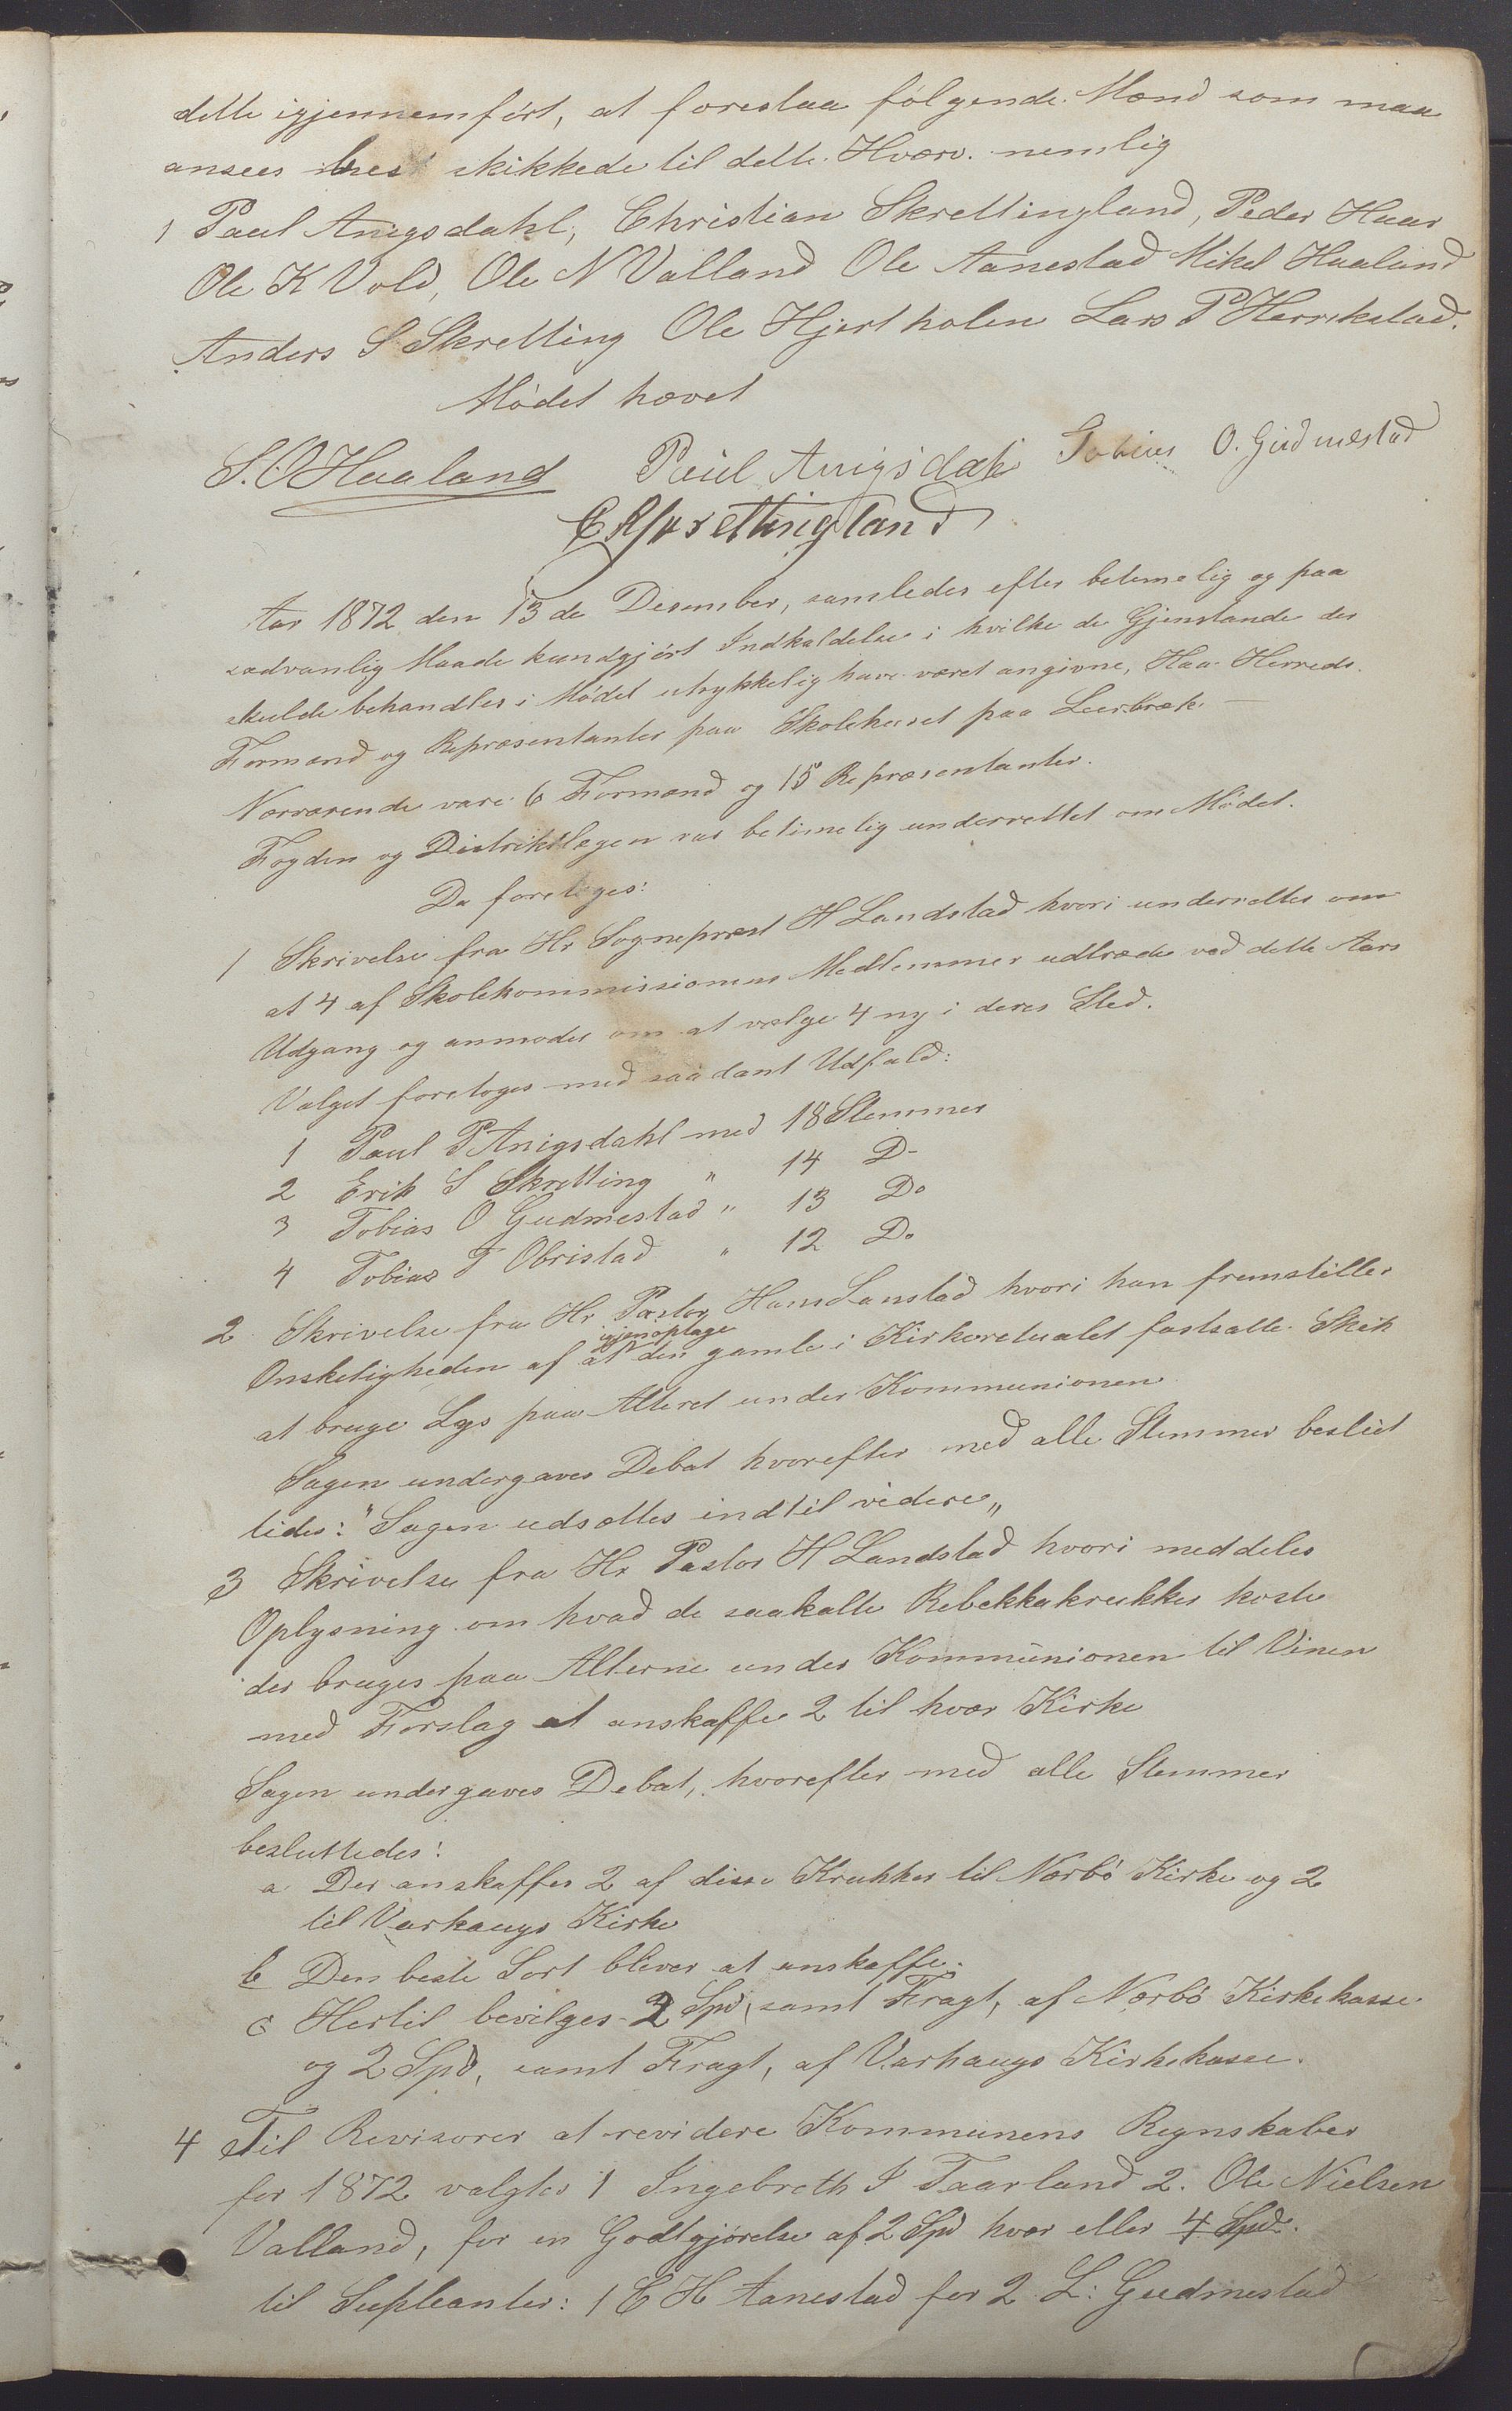 dette igjennemført, at foreslaa følgende Mænd som maa
ansees best skikkede til dette Hværv. nemlig
1 Paul Anigsdahl, Christian Skrettingland, Peder Haar
Ole K Vold, Ole N Valland Ole Aanestad Mikel Haaland
Anders S Skretting Ole Hjertholen Lars P Herrikstad.
Mødet hævet
S. O Haaland Paul Anigsdahl Tobias O. Gudmestad
C R Skrettingland
Aar 1872 den 13de Desember, samledes efter betimelig og paa
sædvanlig Maade kundgjørt Indkaldelse i hvilke de Gjenstande der
skulde behandles i Mødet utrykkelig have været angivne, Haa Herreds
Formænd og Repræsentanter paa Skolehuset paa Leerbræk. —
Nærværende vare 6 Formænd og 15 Repræsentanter.
Fogden og Distriktslægen var betimelig underrettet om Mødet.
Da foretoges:
1 Skrivelse fra Hr Sogneprest H Landstad hvori underrettes om
at 4 af Skolekommissionens Medlemmer udtræde ved dette Aars
Udgang og anmodes om at vælge 4 ny i deres Sted.
Valget foretoges med saadant Udfald:
1 Paul P Anigsdahl med 18 Stemmer
2 Erik S Skretting " 14 D-
3 Tobias O Gudmestad " 13 Do
4 Tobias T Obristad " 12 Do
2 Skrivelse fra Hr Pastor Hans Lanstad hvori han fremstiller
Ønskeligheden af at igjenoptage den gamle i Kirkeretualet fastsatte Skik
at bruge Lys paa Alteret under Kommunionen
Sagen undergaves Debat hvorefter med alle Stemmer beslut
tedes: "Sagen udsættes indtil videre"
3 Skrivelse fra Hr Pastor H Landstad hvori meddeles
Oplysning om hvad de saakalte Rebekkakrukker koste
der bruges paa Alterne under Kommunionen til Vinen
med Forslag at anskaffe 2 til hver Kirke
Sagen undergaves Debat, hvorefter med alle Stemmer
besluttedes:
a Der anskaffes 2 af disse Krukker til Nærbø Kirke og 2
til Varhaugs Kirke
b Den beste Sort bliver at anskaffe.
c Hertil bevilges 2 Spd, samt Fragt, af Nærbø Kirkekasse
og 2 Spd, samt Fragt, af Varhaugs Kirkekasse.
4 Til Revisorer at revidere Kommunens Regnskaber
for 1872 valgtes 1 Ingebreth I Taarland 2. Ole Nielsen
Valland, for en Godtgjørelse af 2 Spd hver eller 4 Spd.
til Supleanter: 1 E H Aanestad for 2 L: Gudmestad